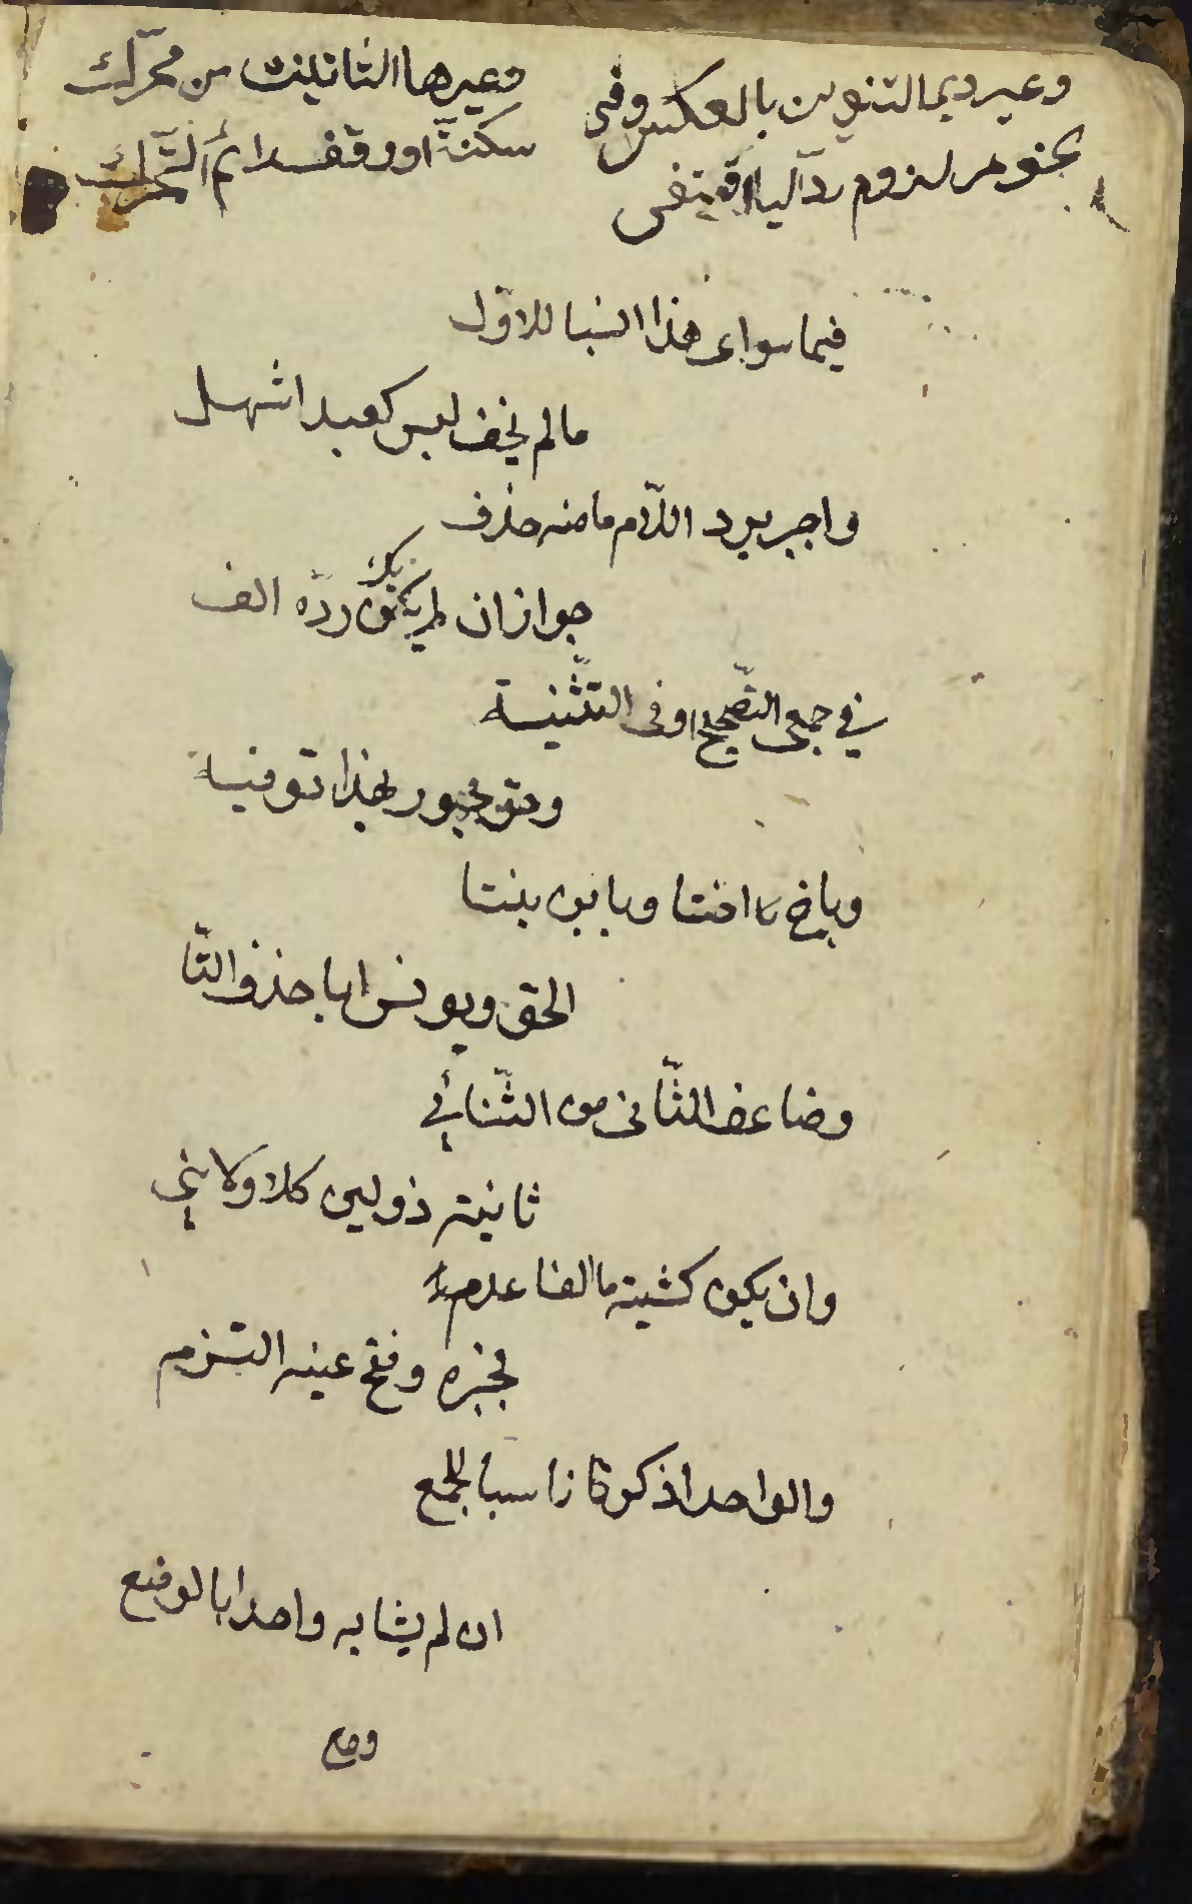 وغير ذي التنوين بالعكس وفي
نحو مر لزوم رد اليا اقتفى
وغيرها التانيث من محرك
سكنه او وقف رائم التحرك
فيما سوى هذا انسبا للاوّل
مالم يخف لبس كعبد اشهل
واجبر برد اللّام مامنه حذف
جوازا ان لم يكن يك ردّه الف
في جمعى التّصحيح اوفى التّثنية
وحق مجبور بهذا توفية
وباخ اختا وبابن بنتا
الحق ويونس ابا حذف التّا
وضاعف الثّانى من الثّنائي
ثانيه ذو لين كلا ولائي
وان يكن كشية ما الفا عدم
فجبره وفتح عينه التزم
والواحد اذكر ناسبا للجمع
ان لم يشابه واحدا بالوضع
ومع